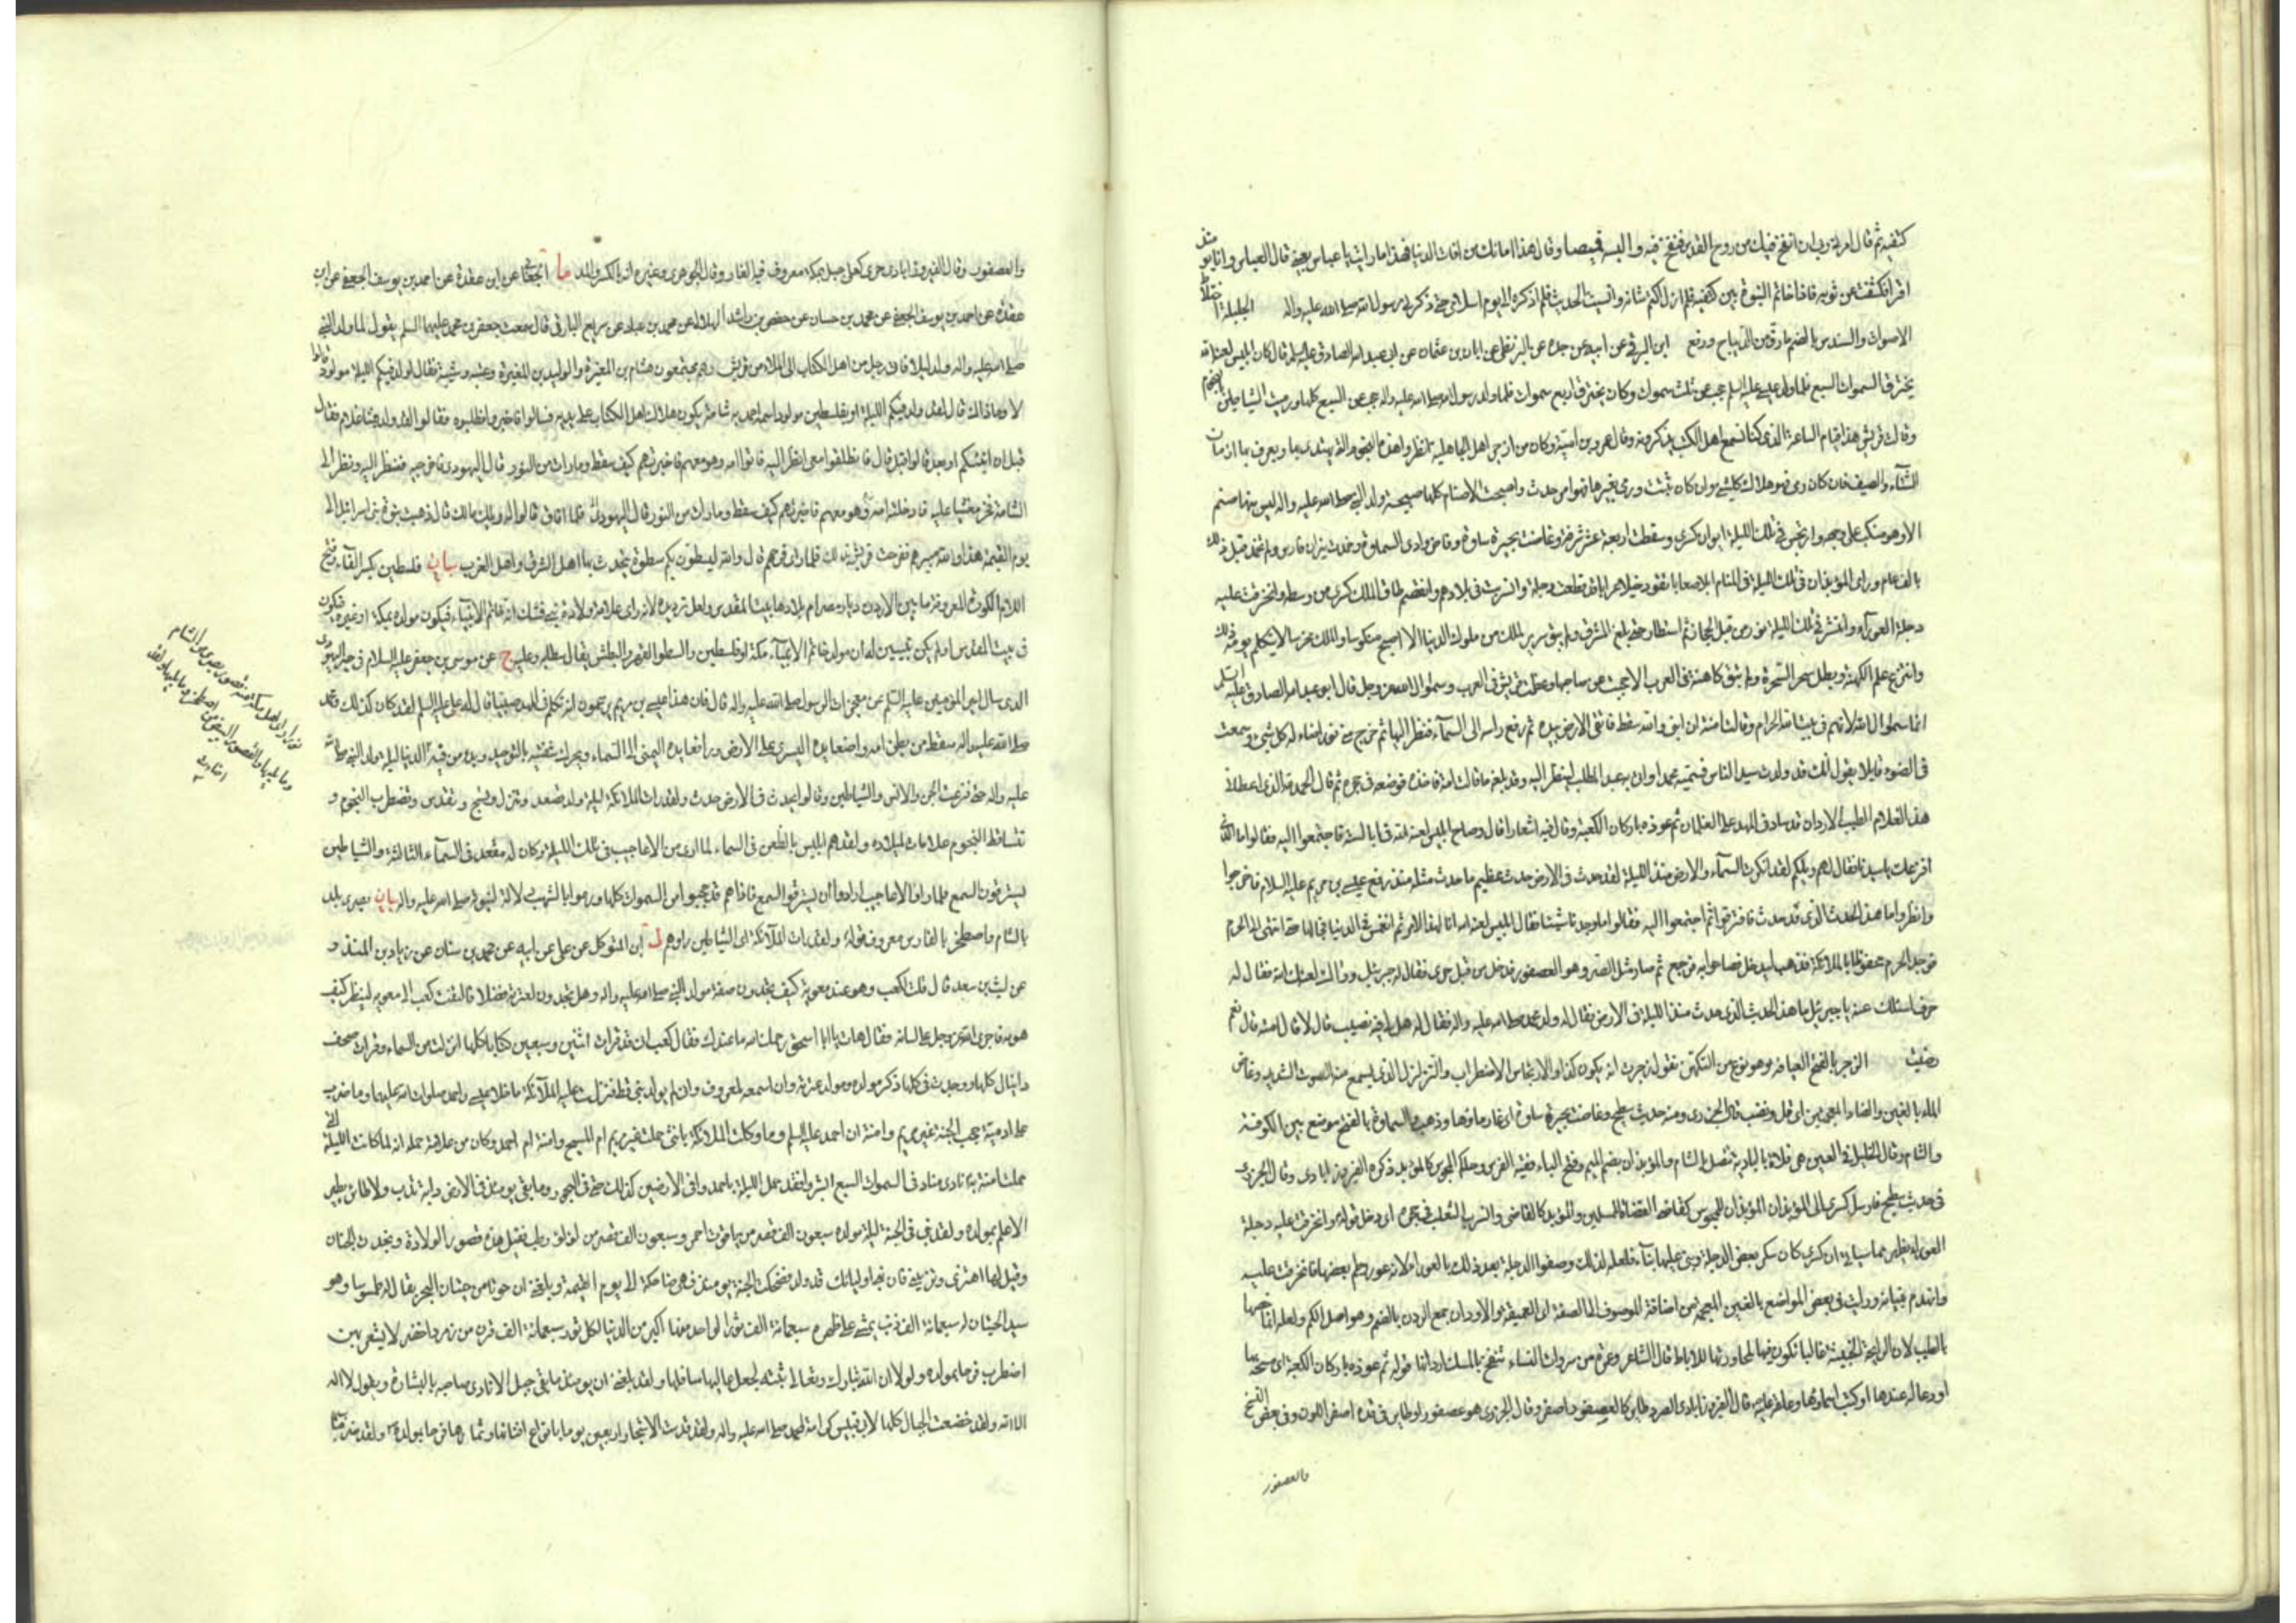 كتفيه ثم قال امرني ربي ان انفخ فيك من روح القدس فنفخ فيه والبسه قميصا وقال هذا امانك من افات الدنيا فهذا ما رايت يا عباس بعيني قال العباس وانا يومئذ
اقرا فكشفت عن ثوبه فاذا خاتم النبوة بين كتفيه فلم ازل اكتم شانه وانسيت الحديث فلم اذكره الى يوم اسلامي حتى ذكرني رسول الله صلى الله عليه واله الجلبة اختلاط
الاصوات والسندس بالضم ما رق من الديباج ورفع ابن البرقي عن ابيه عن جده عن البزنطي عن ابان بن عثمان عن ابي عبد الله الصادق عليه السلم قال كان ابليس لعنه الله
يخترق السموات السبع فلما ولد عيسى عليه السلم حجب عن ثلث سموات وكان يخترق اربع سموات فلما ولد رسول الله صلى الله عليه واله حجب عن السبع كلها ورميت الشياطين بالنجوم
وقالت قريش هذا قيام الساعة الذي كنا نسمع اهل الكتب يذكرونه وقال عمرو بن امية وكان من ازجر اهل الجاهلية انظروا هذه النجوم التي يهتدى بها ويعرف بها ازمان
الشتاء والصيف فان كان رمى بها فهو هلاك كل شيء وان كان ثبتت ورمى بغيرها فهو امر حدث واصبحت الاصنام كلها صبيحة ولد النبي صلى الله عليه واله ليس منها صنم
الا وهو منكب على وجهه وارتجس في تلك الليلة ايوان كسرى وسقطت اربعة عشر شرفة وغاضت بحيرة ساوة وفاض وادي السماوة وخمدت نيران فارس ولم تخمد قبل ذلك
بالف عام وراى المؤبذان في تلك الليلة في المنام ابلا صعابا تقود خيلا عرابا قد قطعت دجلة وانسربت في بلادهم وانفصم طاق الملك كسرى من وسطه وانخرقت عليه
دجلة العوراء وانتشر في تلك الليلة نور من قبل الحجاز ثم استطار حتى بلغ المشرق ولم يبق سرير لملك من ملوك الدنيا الا اصبح منكوسا والملك مخرسا لا يتكلم يومه ذلك
وانتزع علم الكهنة وبطل سحر السحرة ولم يبق كاهنة في العرب الا حجبت عن صاحبها وعظمت قريش في العرب وسموا ال الله عز وجل قال ابو عبد الله الصادق عليه السلم
انما سموا ال الله لانهم في بيت الله الحرام وقالت امنة ان ابني والله سقط فاتقى الارض بيده ثم رفع راسه الى السماء فنظر اليها ثم خرج مني نور اضاء له كل شيء وسمعت
في الضوء قايلا يقول انك قد ولدت سيد الناس فسميه محمدا واتي به عبد المطلب لينظر اليه وقد بلغه ما قالت امه فاخذه فوضعه في حجره ثم قال الحمد لله الذي اعطاني
هذا الغلام الطيب الاردان قد ساد في المهد على الغلمان ثم عوذه باركان الكعبة وقال فيه اشعارا قال وصاح ابليس لعنه الله في ابالسته فاجتمعوا اليه فقالوا ما الذي
افزعك يا سيدنا فقال لهم ويلكم لقد انكرت السماء والارض منذ الليلة لقد حدث في الارض حدث عظيم ما حدث مثله منذ رفع عيسى بن مريم عليه السلام فاخرجوا
وانظروا ما هذا الحدث الذي قد حدث فافترقوا ثم اجتمعوا اليه فقالوا ما وجدنا شيئا فقال ابليس لعنه الله انا لهذا الامر ثم انغمس في الدنيا فجالها حتى انتهى الى الحرم
فوجد الحرم محفوظا بالملائكة فذهب ليدخل فصاحوا به فرجع ثم صار مثل الصر وهو العصفور فدخل من قبل حرى فقال له جبرئيل وراك لعنك الله فقال له
حرف اسئلك عنه يا جبرئيل ما هذا الحدث الذي حدث منذ الليلة في الارض فقال له ولد محمد صلى الله عليه واله فقال له هل لي فيه نصيب قال لا قال ففي امته قال نعم
رضيت الزجر بالفتح العيافة وهو نوع من التكهن تقول زجرت انه يكون كذا والارتجاس الاضطراب والتزلزل الذي يسمع منه الصوت الشديد وغاض
الماء بالغين والضاد المعجمتين اي قل ونضب قال الجزري ومنه حديث سطيح وغاضت بحيرة ساوة اي غار ماؤها وذهب والسماوة بالفتح موضع بين الكوفة
والشام وقال الخليل في العين هي فلاة بالبادية تتصل بالشام والمؤبذان بضم الميم وفتح الباء فقيه الفرس وحاكم المجوس كالمؤبذ ذكره الفيروزابادي وقال الجزري
في حديث سطيح فارسل كسرى الى المؤبذان المؤبذان للمجوس كقاضي القضاة للمسلمين والمؤبذ كالقاضي وانسرب الثعلب في جحره اي دخل قوله وانخرقت عليه دجلة
العوراء يظهر مما سياتي ان كسرى كان سكر بعض الدجلة وبنى عليها بناء فلعله لذلك وصفوا الدجلة بعد ذلك بالعوراء لانه عور وطم بعضها فانخرقت عليه
وانهدم بنيانه ورايت في بعض المواضع بالغين المعجمة من اضافة الموصوف الى الصفة اي العميقة والاردان جمع الردن بالضم وهو اصل الكم ولعله انما خصها
بالطيب لان الرايحة الخبيثة غالبا تكون فيها لمجاورتها للاباط قال الشاعر وعمرة من سروات النساء تنفح بالمسك اردانها قوله ثم عوذه باركان الكعبة اي مسحه بها
او دعا له عندها او كتب اسماءها وعلقها عليه قال الفيروزابادي الصر طاير كالعصفور اصفر وقال الجزري هو عصفور او طاير في قده اصفر اللون وفي بعض النسخ
والعصفور
والعصفور وقال الفيروزابادي حرى كعلى جبل بمكة معروف فيه الغار وقال الجوهري وغيره انه بالكسر والمد ما الجعابي عن ابن عقدة عن احمد بن يوسف الجعفي عن ابن
عقدة عن احمد بن يوسف الجعفي عن محمد بن حسان عن حفص بن راشد الهلالي عن محمد بن عباد عن سريع البارقي قال سمعت جعفر بن محمد عليهما السلم يقول لما ولد النبي
صلى الله عليه واله ولد ليلا فاتى رجل من اهل الكتاب الى الملاء من قريش وهم مجتمعون هشام بن المغيرة والوليد بن المغيرة وعتبة وشيبة فقال اولد فيكم الليلة مولود قالوا
لا وما ذاك قال لقد ولد فيكم الليلة او بفلسطين مولود اسمه احمد به شامة يكون هلاك اهل الكتاب على يديه فسالوا فاخبروا فطلبوه فقالوا لقد ولد فينا غلام فقال
قبل ان انبئكم او بعد قالوا قبل قال فانطلقوا معي انظر اليه فاتوا امه وهو معهم فاخبرتهم كيف سقط وما رات من النور قال اليهودي فاخرجيه فنظر اليه ونظر الى
الشامة فخر مغشيا عليه فادخلته امه وهو معهم فاخبرتهم كيف سقط وما رات من النور قال اليهودي فلما افاق قالوا له ويلك ما لك قال ذهبت نبوة بني اسرائيل الى
يوم القيمة هذا والله مبيرهم ففرحت قريش بذلك فلما راى فرحهم قال والله ليسطون بكم سطوة يتحدث بها اهل الشرق واهل الغرب بيان فلسطين بكسر الفاء وفتح
اللام الكورة المعروفة ما بين الاردن وديار مصر ام بلادها بيت المقدس ولعل ترديده لانه راى علامة ولادة نبي فشك انه خاتم الانبياء فيكون مولده بمكة او غيره فيكون
في بيت المقدس او لم يكن تبين له ان مولد خاتم الانبياء مكة او فلسطين والسطو القهر والبطش يقال سطا به وعليه ج عن موسى بن جعفر عليه السلام في خبر اليهودي
الذي سال امير المؤمنين عليه السلم عن معجزات الرسول صلى الله عليه واله قال فان هذا عيسى بن مريم يزعمون انه تكلم في المهد صبيا قال له علي عليه السلم لقد كان كذلك ومحمد
صلى الله عليه واله سقط من بطن امه واضعا يده اليسرى على الارض ورافعا يده اليمنى الى السماء ويحرك شفتيه بالتوحيد
عليه واله حتى فزعت الجن والانس والشياطين وقالوا حدث في الارض حدث ولقد رات الملائكة ليلة ولد تصعد وتنزل وتسبح وتقدس وتضطرب النجوم و
تتساقط النجوم علامات لميلاده ولقد هم ابليس بالظعن في السماء لما راى من الاعاجيب في تلك الليلة وكان له مقعد في السماء الثالثة والشياطين
يسترقون السمع فلما راوا الاعاجيب ارادوا ان يسترقوا السمع فاذا هم قد حجبوا من السموات كلها ورموا بالشهب دلالة لنبوته صلى الله عليه واله بيان بصرى بلد
بالشام واصطخر بالفارس معروف قوله ولقد رات الملائكة اي الشياطين راوهم ل ابن المتوكل عن علي عن ابيه عن محمد بن سنان عن زياد بن المنذر و
عن ليث بن سعد قال قلت لكعب وهو عند معوية كيف تجدون صفة مولد النبي صلى الله عليه واله وهل تجدون لعترته فضلا فالتفت كعب الى معوية لينظر كيف
هو به فاجرى الله عز وجل على لسانه فقال هات يا ابا اسحق رحمك الله ما عندك فقال كعب اني قد قرات اثنين وسبعين كتابا كلها انزلت من السماء وقرات صحف
دانيال كلها ووجدت في كلها ذكر مولده ومولد عترته وان اسمه لمعروف وانه لم يولد نبي قط فنزلت عليه الملائكة ما خلا عيسى واحمد صلوات الله عليهما وما ضرب
على ادمية حجب الجنة غير مريم وامنة ام احمد عليه السلم وما وكلت الملائكة بانثى حملت غير مريم ام المسيح وامنة ام احمد وكان من علامة حمله انه لما كانت الليلة التي
حملت امنة به نادى مناد في السموات السبع ابشروا فقد حمل الليلة باحمد وفي الارضين كذلك حتى في البحور وما بقي يومئذ في الارض دابة تدب ولا طاير يطير
الا علم بمولده ولقد بني في الجنة ليلة مولده سبعون الف قصر من ياقوت احمر وسبعون الف قصر من لؤلؤ رطب فقيل هذه قصور الولادة ونجدت الجنان
وقيل لها اهتزي وتزيني فان نبي اوليائك قد ولد فضحكت الجنة يومئذ فهي ضاحكة الى يوم القيمة وبلغني ان حوتا من حيتان البحر يقال له طموسا وهو
سيد الحيتان له سبعمائة الف ذنب يمشي على ظهره سبعمائة الف ثور الواحد منها اكبر من الدنيا لكل ثور سبعمائة الف قرن من زمرد اخضر لا يشعر بهن
اضطرب فرحا بمولده ولولا ان الله تبارك وتعالى ثبته لجعل عاليها سافلها ولقد بلغني ان يومئذ ما بقي جبل الا نادى صاحبه بالبشارة ويقول لا اله
الا الله ولقد خضعت الجبال كلها لابي قبيس كرامة لمحمد صلى الله عليه واله ولقد قدست الاشجار اربعين يوما بانواع افنانها وثمارها فرحا بمولده ولقد ضرب